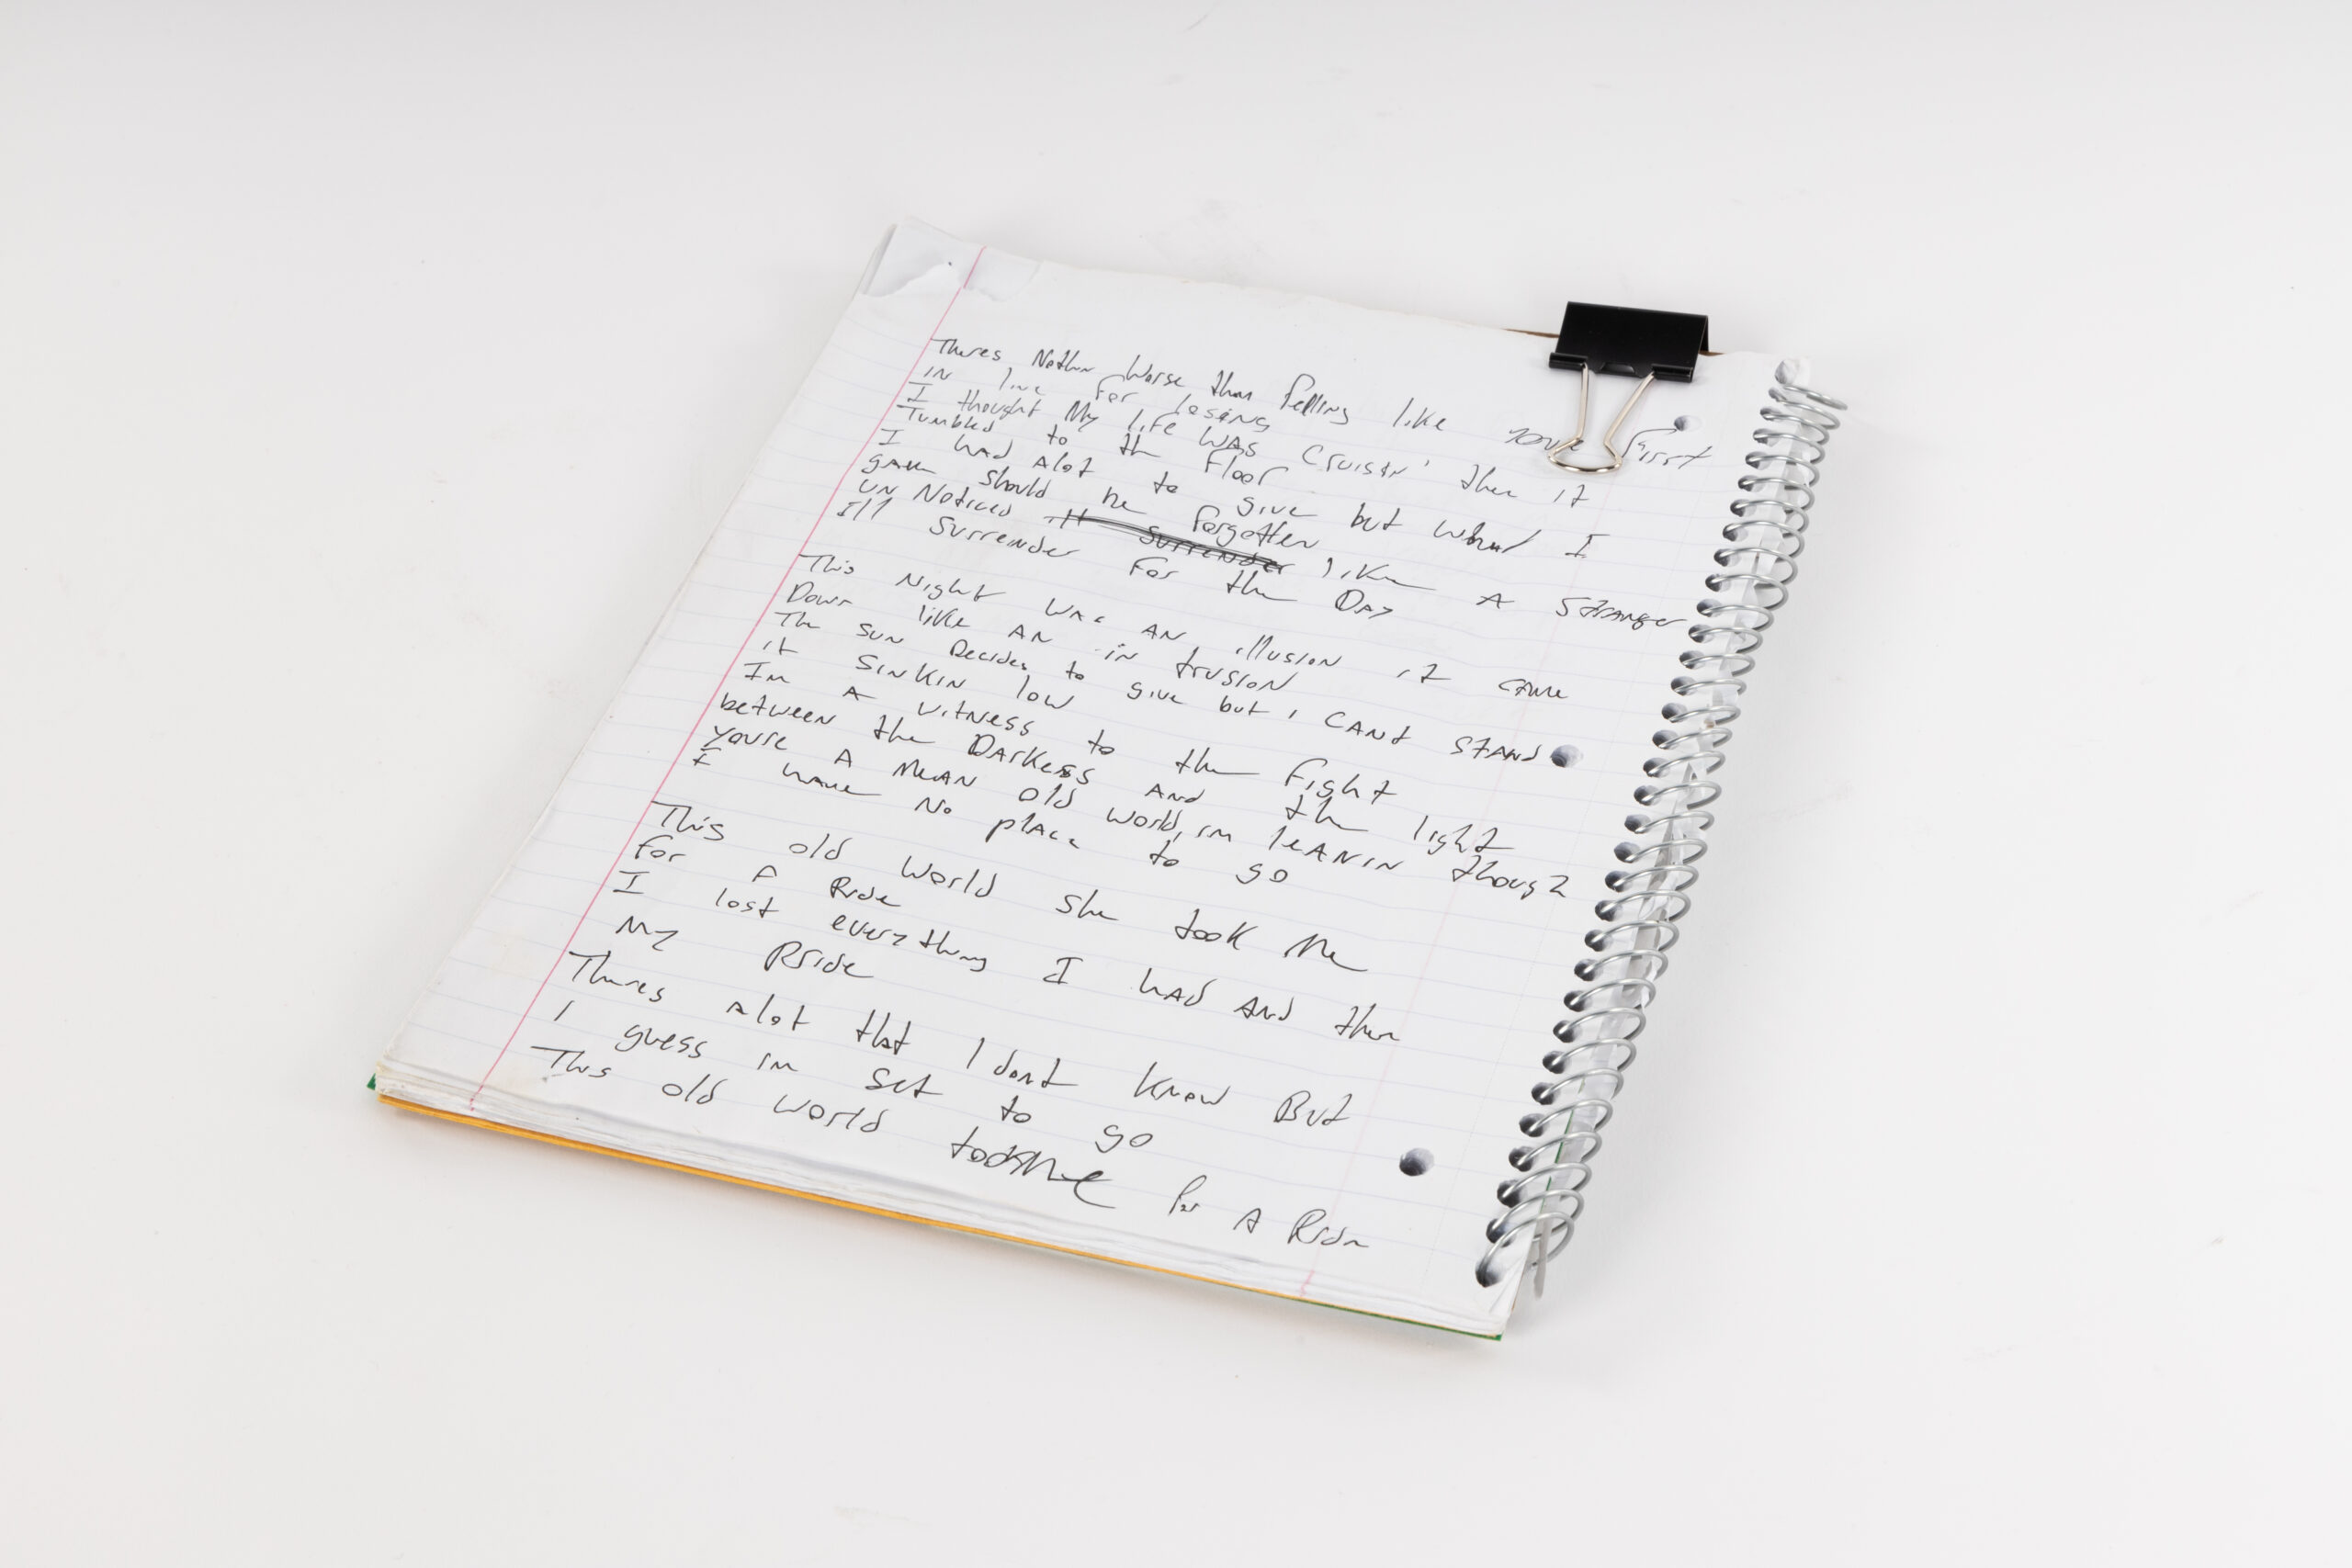 Theres Nothin worse than felling like your first
IN line for losing
I thought My life WAS Cruisin' then it
Tumbled to the Floor
I HAD Alot to give but what I
gave should be forgotten
UN Noticed I'll surrender like A stranger
I'll surrender for the Day
This Night was AN illusion it came
Down like AN in trusion
The SUN Decides to give but i CANt STAND
it SINKIN low
Im A WITNESS to the fight
between the DARKess AND the light
youre A MEAN old world, im leANIN though
I have No place to go
This old World She took Me
for A Ride
I lost everything I HAD AND then
My PRide
Theres Alot that I dont Know But
I guess im set to go
This old world took Me for A Ride